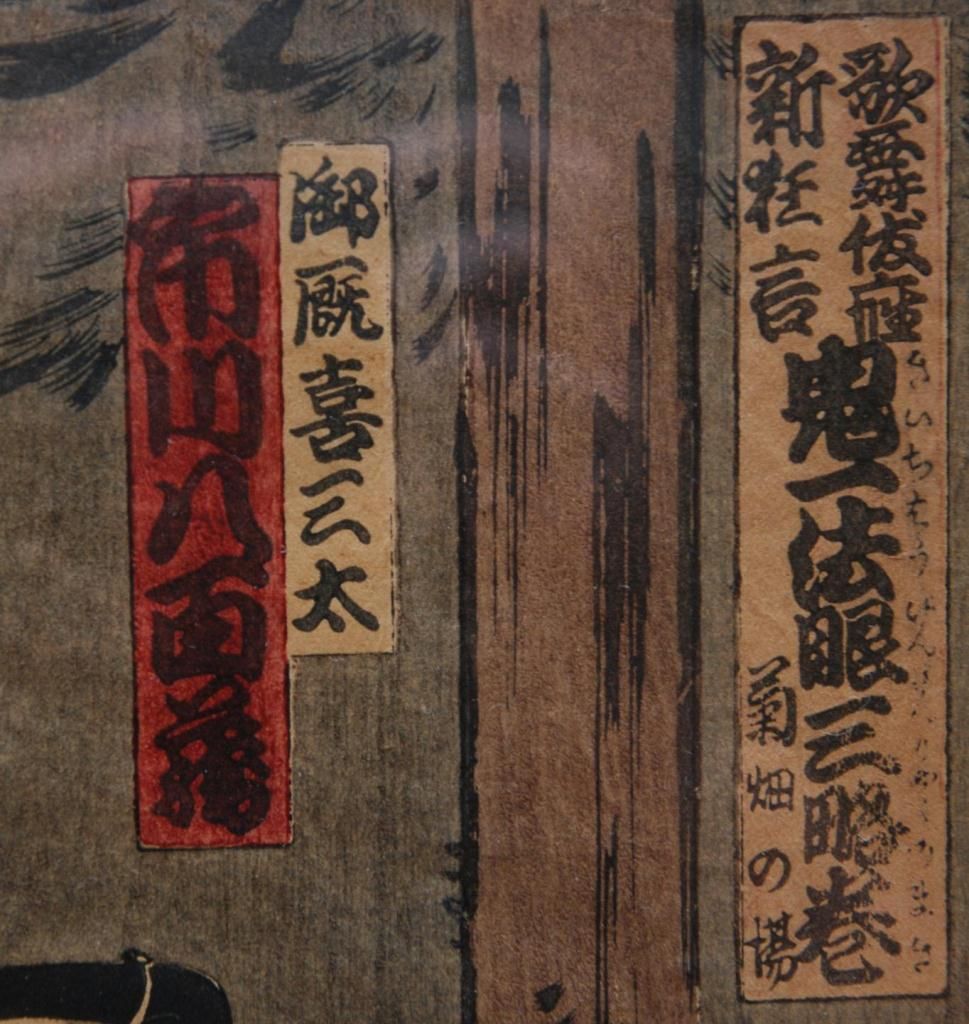 歌舞伎座
新狂言
鬼一法眼三略巻
きいちほうげんさんりやくのまき
菊畑の場
御厩喜三太
市川八百蔵